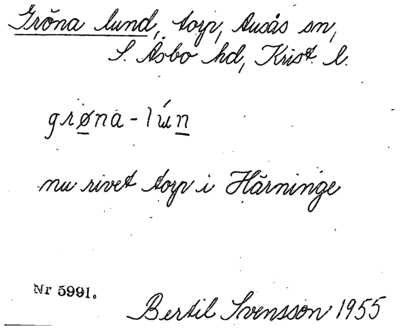 Gröna lund, torp, Ausås sn,
S. Åsbo hd, Krist. l.
grøna-lún
nu rivet torp i Härninge
Nr 5991.
Bertil Svensson 1955